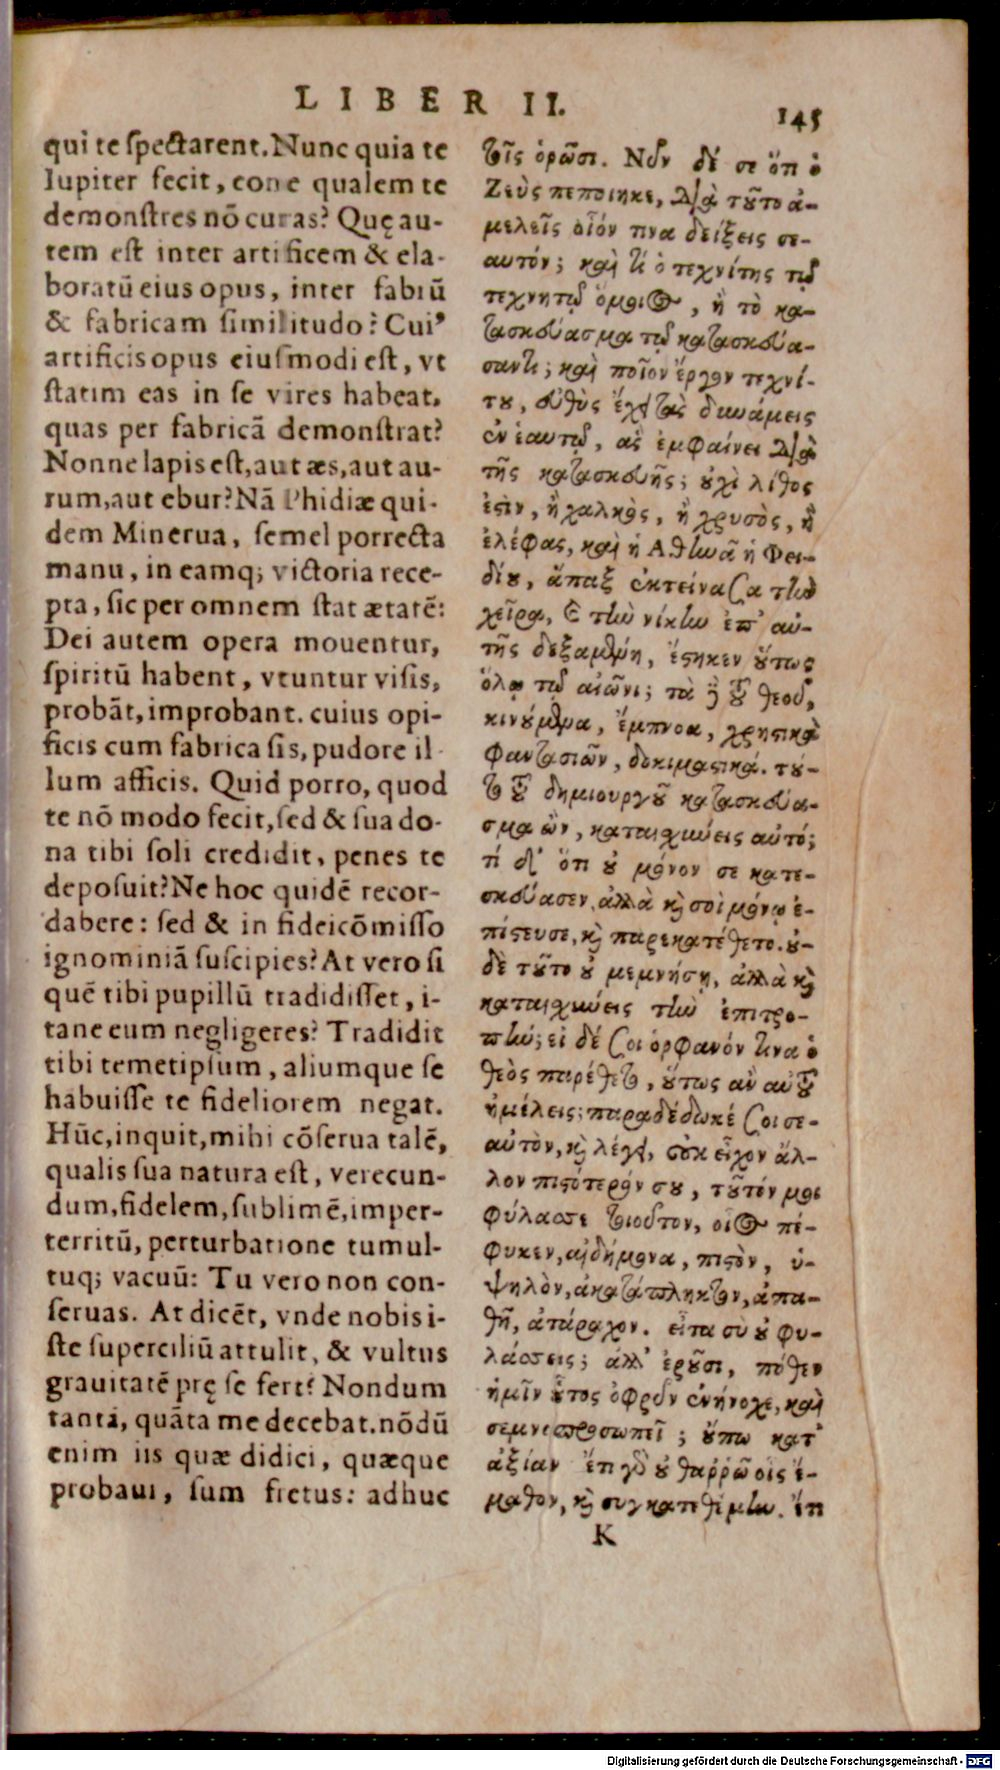 LIBER II.
145
qui te ſpectarent. Nunc quia te
Iupiter fecit, eone qualem te
demonſtres nō curas? Quę au-
tem eſt inter artificem & ela-
boratū eius opus, inter fabrū
& fabricam ſimilitudo? Cui'
artificis opus eiuſmodi eſt, vt
ſtatim eas in ſe vires habeat,
quas per fabricā demonſtrat?
Nonne lapis eſt, aut æs, aut au-
rum, aut ebur? Nā Phidiæ qui-
dem Minerua, ſemel porrecta
manu, in eamq; victoria rece-
pta, ſic per omnem ſtat ætatē:
Dei autem opera mouentur,
ſpiritū habent, vtuntur viſis,
probāt, improbant. cuius opi-
ficis cum fabrica ſis, pudore il-
lum afficis. Quid porro, quod
te nō modo fecit, ſed & ſua do-
na tibi ſoli credidit, penes te
depoſuit? Ne hoc quidē recor-
dabere: ſed & in fideicōmiſſo
ignominiā ſuſcipies? At vero ſi
quē tibi pupillū tradidiſſet, i-
tane eum negligeres? Tradidit
tibi temetipſum, aliumque ſe
habuiſſe te fideliorem negat.
Hūc, inquit, mihi cōſerua talē,
qualis ſua natura eſt, verecun-
dum, fidelem, ſublimē, imper-
territū, perturbatione tumul-
tuq; vacuū: Tu vero non con-
ſeruas. At dicēt, vnde nobis i-
ſte ſuperciliū attulit, & vultus
grauitatē prę ſe fert? Nondum
tanta, quāta me decebat. nōdū
enim iis quæ didici, quæque
probaui, ſum fretus: adhuc
τοῖς ὁρῶσι. Νῦν δέ σε ὅτι ὁ
Ζεὺς πεποίηκε, διὰ τοῦτο ἀ-
μελεῖς οἷόν τινα δείξεις σε-
αυτόν; καὶ τί ὁ τεχνίτης τῷ
τεχνητῷ ὅμοιος, ἢ τὸ κα-
τασκεύασμα τῷ κατασκευά-
σαντι; καὶ ποῖον ἔργον τεχνί-
του, εὐθὺς ἔχει τὰς δυνάμεις
ἐν ἑαυτῷ, ἃς ἐμφαίνει διὰ
τῆς κατασκευῆς; οὐχὶ λίθος
ἐστὶν, ἢ χαλκὸς, ἢ χρυσὸς, ἢ
ἐλέφας, καὶ ἡ Ἀθηνᾶ ἡ Φει-
δίου, ἅπαξ ἐκτείνασα τὴν
χεῖρα, & τὴν νίκην ἐπ' αὐ-
τῆς δεξαμένη, ἕστηκεν οὕτως
ὅλῳ τῷ αἰῶνι; τὰ δὲ τοῦ θεοῦ,
κινούμενα, ἔμπνοα, χρηστικὰ
φαντασιῶν, δοκιμαστικά. τού-
του τοῦ δημιουργοῦ κατασκεύα-
σμα ὢν, καταισχύνεις αὐτό;
τί δ' ὅτι οὐ μόνον σε κατε-
σκεύασεν, ἀλλὰ καὶ σοὶ μόνῳ ἐ-
πίστευσε, καὶ παρεκατέθετο. οὐ-
δὲ τοῦτο οὐ μεμνήσῃ, ἀλλὰ καὶ
καταισχύνεις τὴν ἐπιτρο-
πήν; εἰ δέ σοι ὀρφανόν τινα ὁ
θεὸς παρέθετο, οὕτως ἂν αὐτοῦ
ἠμέλεις; παραδέδωκέ σοι σε-
αὐτὸν, καὶ λέγει, οὐκ εἶχον ἄλ-
λον πιστότερόν σου, τοῦτόν μοι
φύλασσε τοιοῦτον, οἷος πέ-
φυκεν, αἰδήμονα, πιστὸν, ὑ-
ψηλὸν, ἀκατάπληκτον, ἀπα-
θῆ, ἀτάραχον. εἶτα σὺ οὐ φυ-
λάσσεις; ἀλλ' ἐροῦσι, πόθεν
ἡμῖν οὗτος ὀφρῦν ἐνήνοχε, καὶ
σεμνοπροσωπεῖ; οὔπω κατ'
ἀξίαν ἔτι γὰρ οὐ θαῤῥῶ οἷς ἔ-
μαθον, καὶ συγκατεθέμην. ἔτι
K
Digitalisierung gefördert durch die Deutsche Forschungsgemeinschaft - DFG